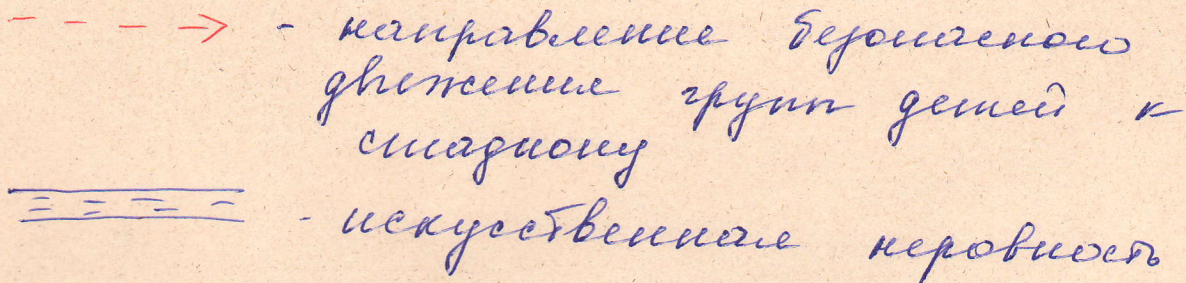 - направление безопасного
движения групп детей к
стадиону
- искусственная неровность